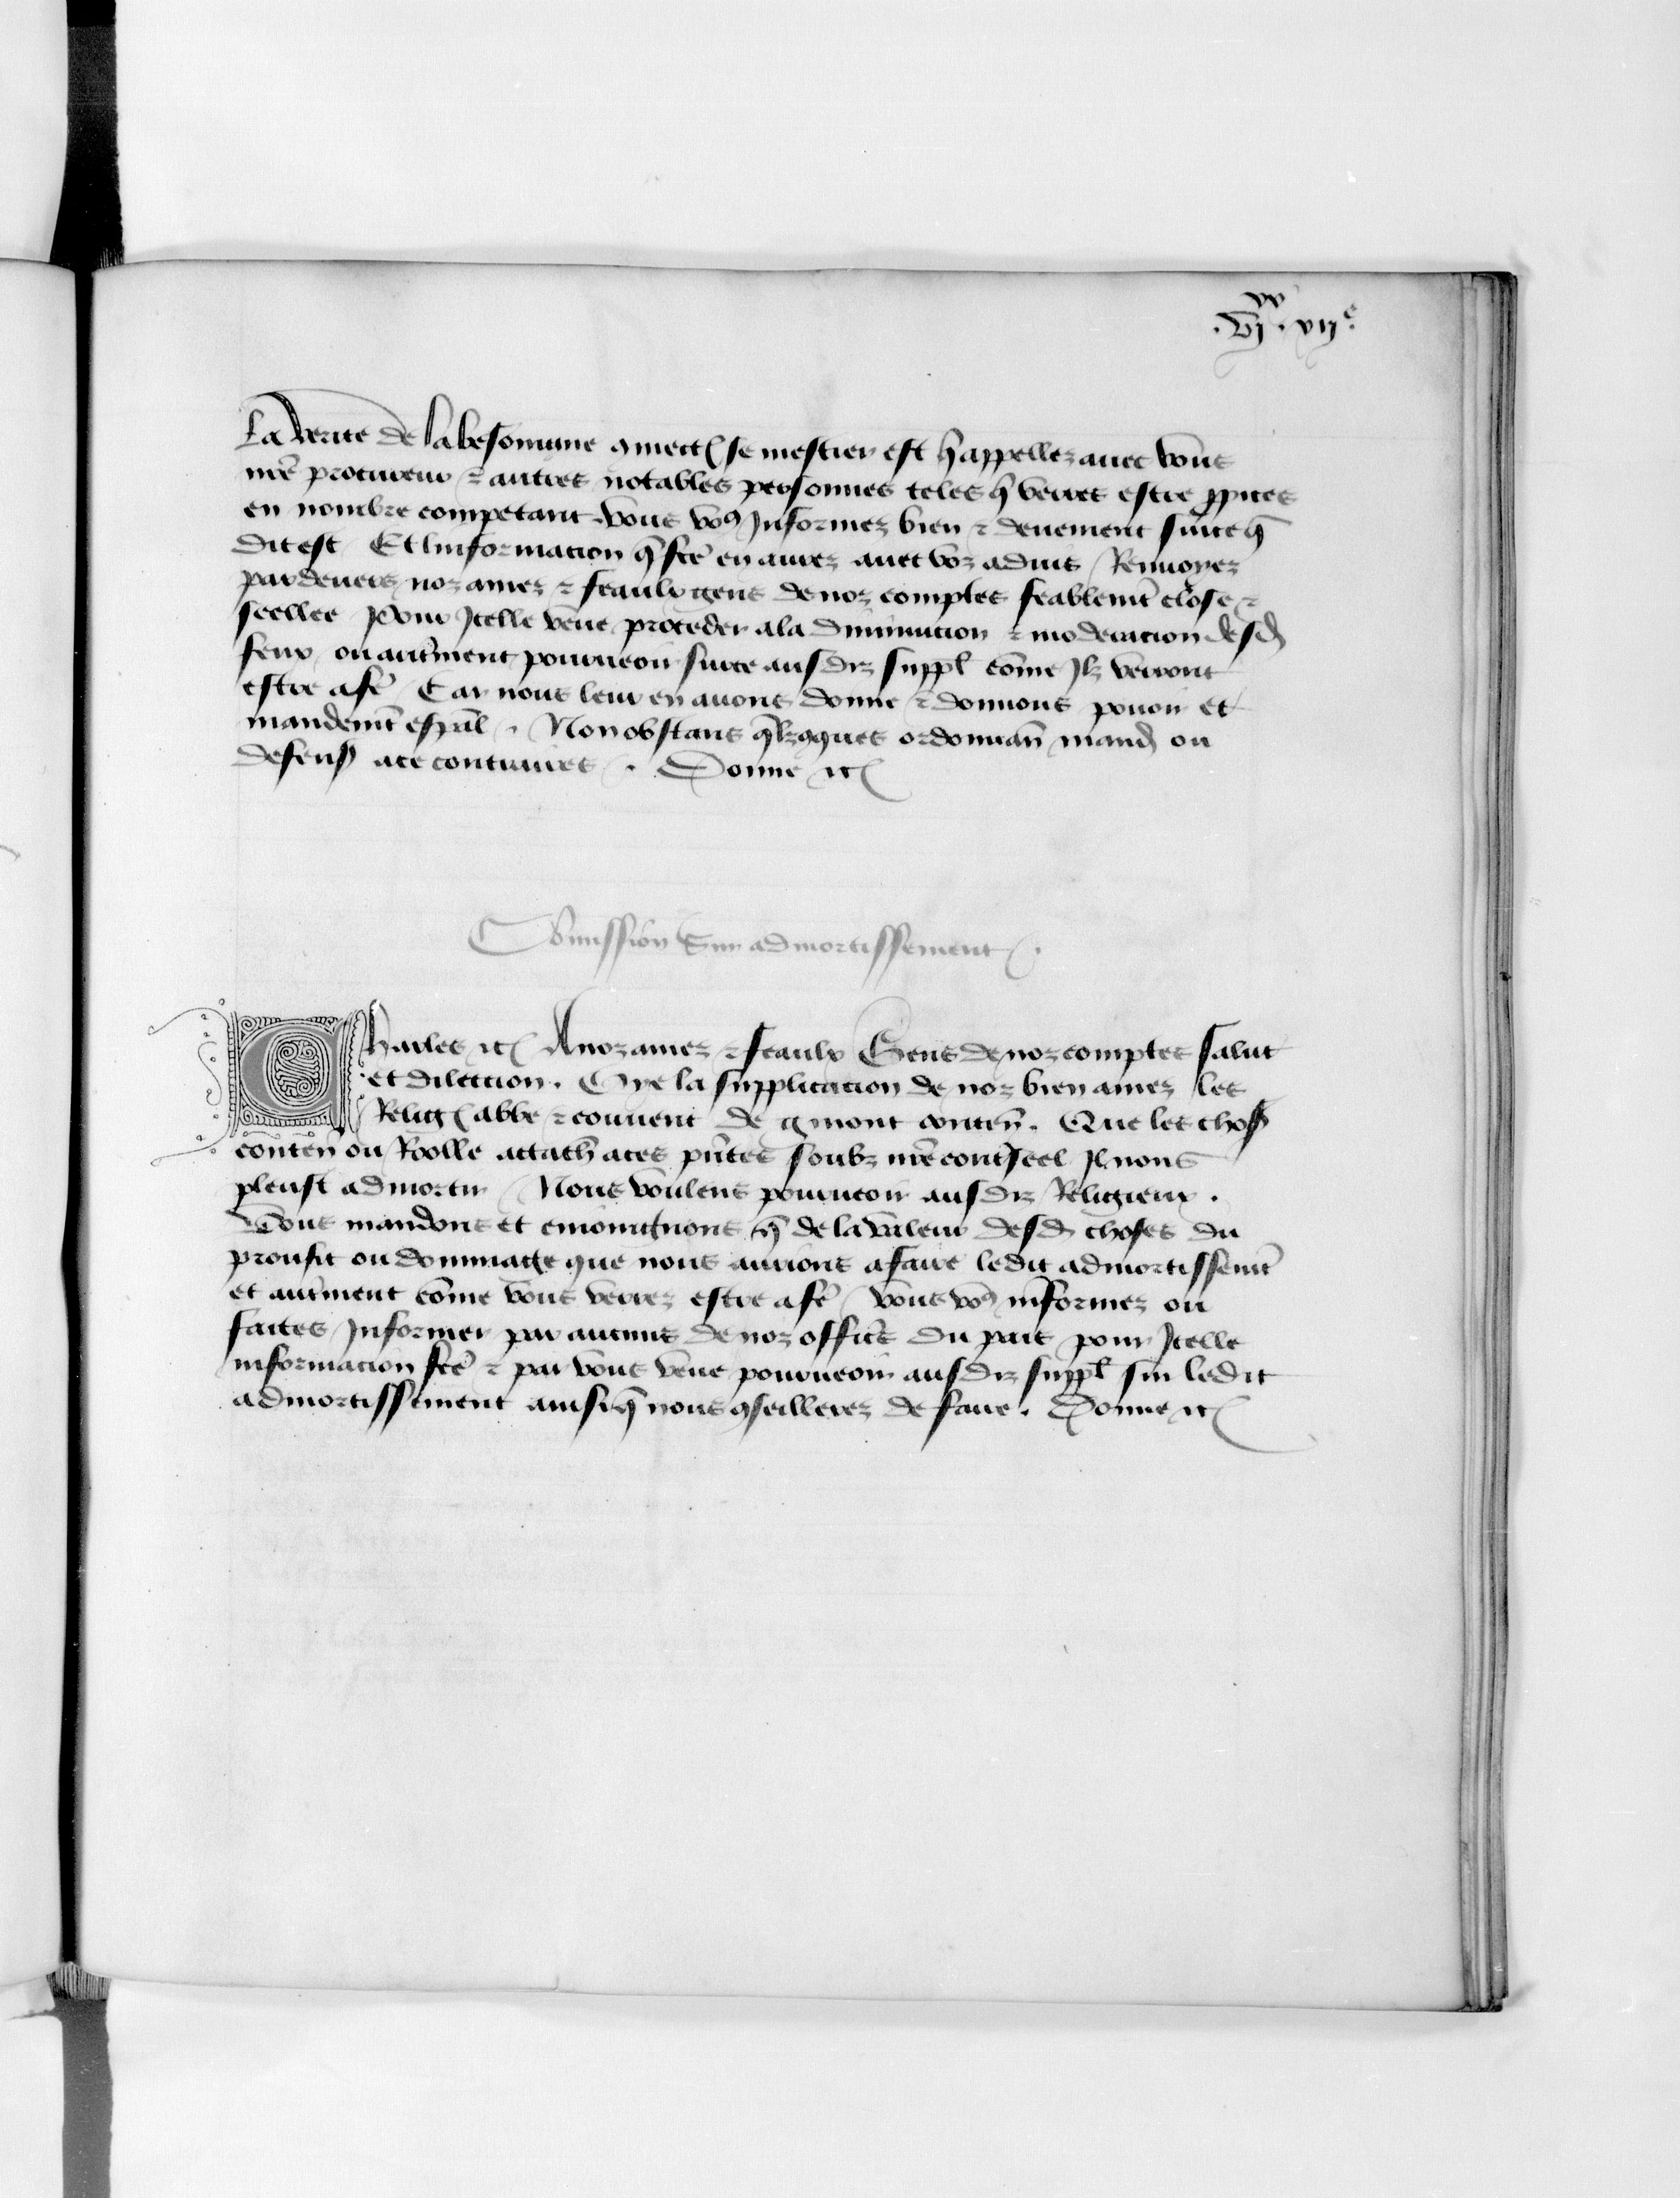 .vjxx. vije.
La verite de la besoingne ꝯmectz se mestier est q̃ appellez auec vous
nr̃e procureur ⁊ autres notables personnes teles q̃ verres estre ꝓpices
en nombre competant vous voꝰ Informez bien ⁊ deuement sur ce q̃
dit est Et linformacion q̃ fc̃e en aurez auec voz aduis Renuoyez
par deuers noz amez ⁊ feaulx gens de noz comptes feablemt̃ close ⁊
seellee Pour Icelle veue proceder a la diminucion ⁊ moderacion desd
feux ou autrement pourueoir sur ce ausdiz suppl cõme Ilz verront
estre a fr̃e Car nous leur en auons donne ⁊ donnons pouoir et
mandemt̃ esp̃al . Non obstans q̃lzꝯques ordonnañ mand ou
defens a ce contraires . Donne ⁊c
Cõmission Sur admortissement .
Charles ⁊c A noz amez ⁊ feaulx Gens de noz comptes salut
et dilection . Oye la supplicacion de noz bien amez les
Relig abbe ⁊ couuent de gmont conten̄ . Que les chos
conten̄ ou Roolle attach a ces pñtes soubz nr̃e contreseel Il nous
pleust admortir Nous voulens pourueoir ausdiz Religieux .
Vous mandons et enioingnons q̃ de la valeur desd choses du
proufit ou dommage que nous aurions a faire ledit admortissemt̃
et autrement cõme vous verrez estre a fr̃e vous voꝰ informez ou
faites Informer par aucuns de noz offic̃s du pais pour Icelle
informacion fc̃e ⁊ par vous veue pourueoir ausdiz suppl sur ledit
admortissement ainsi q̃ nous ꝯseillerez de faire . Donne ⁊c